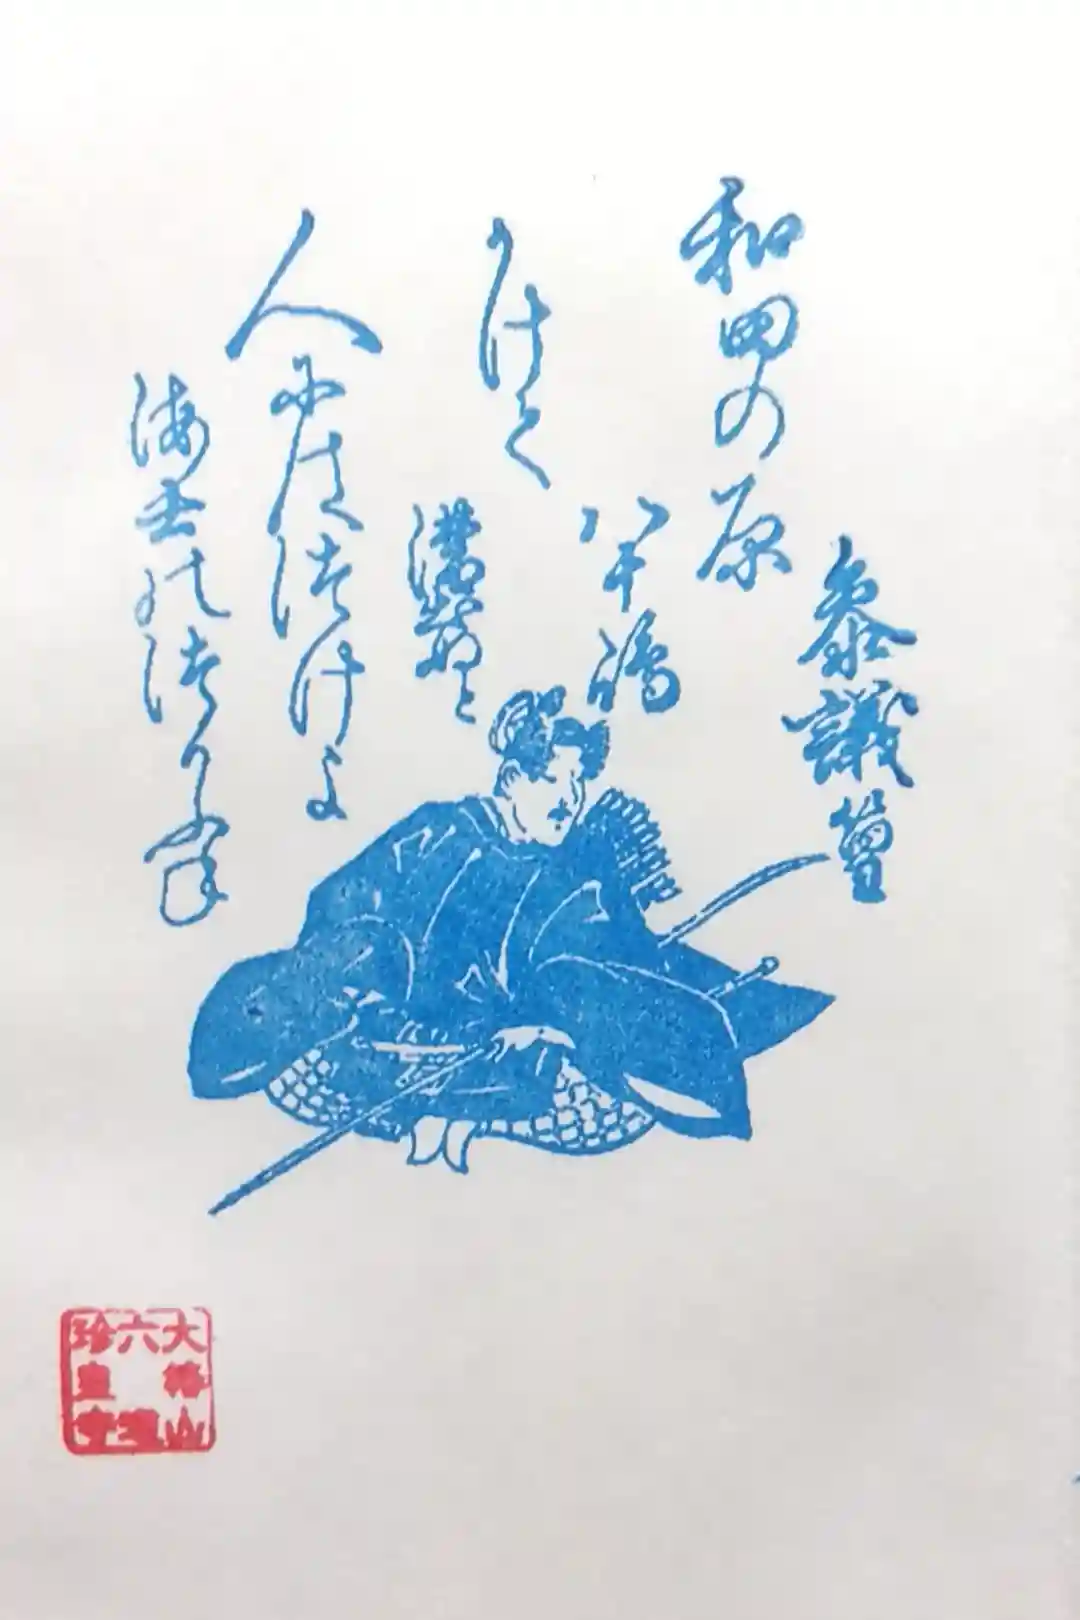 參議篁
和田の原
八十嶋
かけて
漕出ぬと
人にはつけよ
海士のつりふね
大椿山
六道
珍皇寺